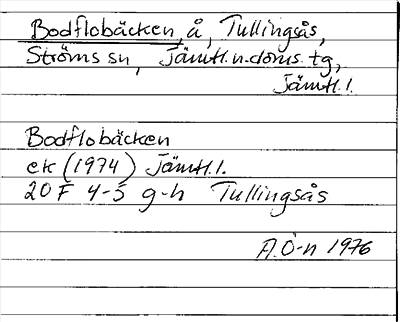 Bodflobäcken, å, Tullingsås,
Ströms sn, Jämtl. n. doms. tg,
Jämtl. l.
Bodflobäcken
ek (1974) Jämtl. l.
20 F 4-5 g-h Tullingsås
A.Ö-n 1976